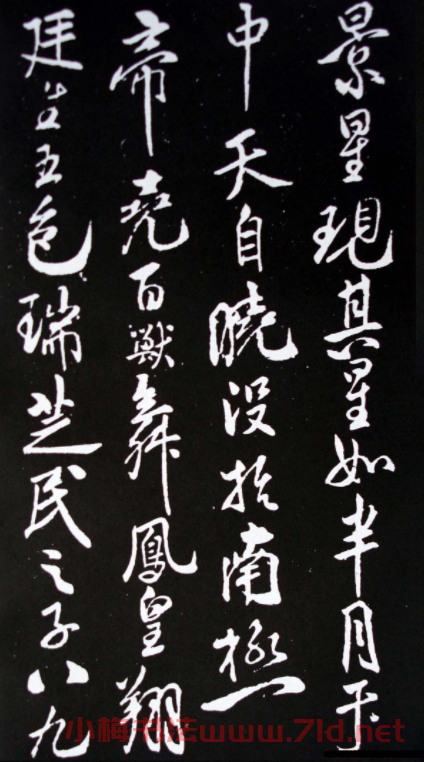 景星現其星如半月于
中天自曉没於南極
帝堯百獸舞鳳皇翔
廷生五色瑞芝民之子八九
小梅书法www.7ld.net